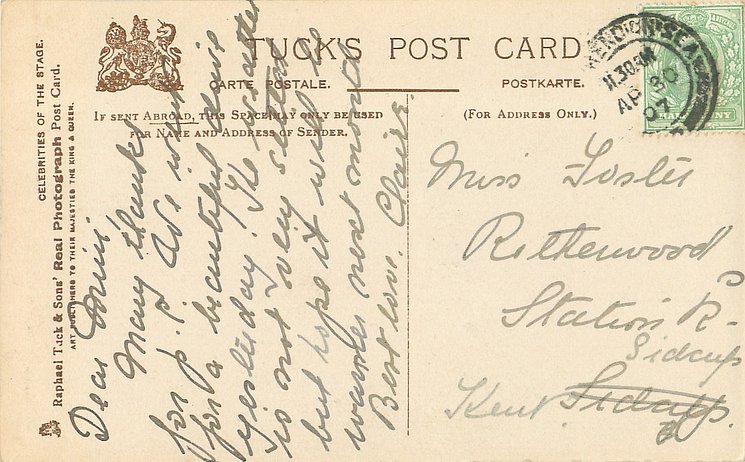 CELEBRITIES OF THE STAGE.
Raphael Tuck & Sons' Real Photograph Post Card.
ART PUBLISHERS TO THEIR MAJESTIES THE KING & QUEEN.
TUCK'S POST CARD
CARTE POSTALE.
POSTKARTE.
IF SENT ABROAD, THIS SPACE MAY ONLY BE USED
FOR NAME AND ADDRESS OF SENDER.
(FOR ADDRESS ONLY.)
11.30AM
AP 30
07
Dear
Many thanks
for p.c. We went
for a beautiful drive
yesterday. The weather
is not very
but hope it will be
warmer next month
Best love. Claire.
Miss Foster
Station R
Sidcup
Kent. Sidcup.